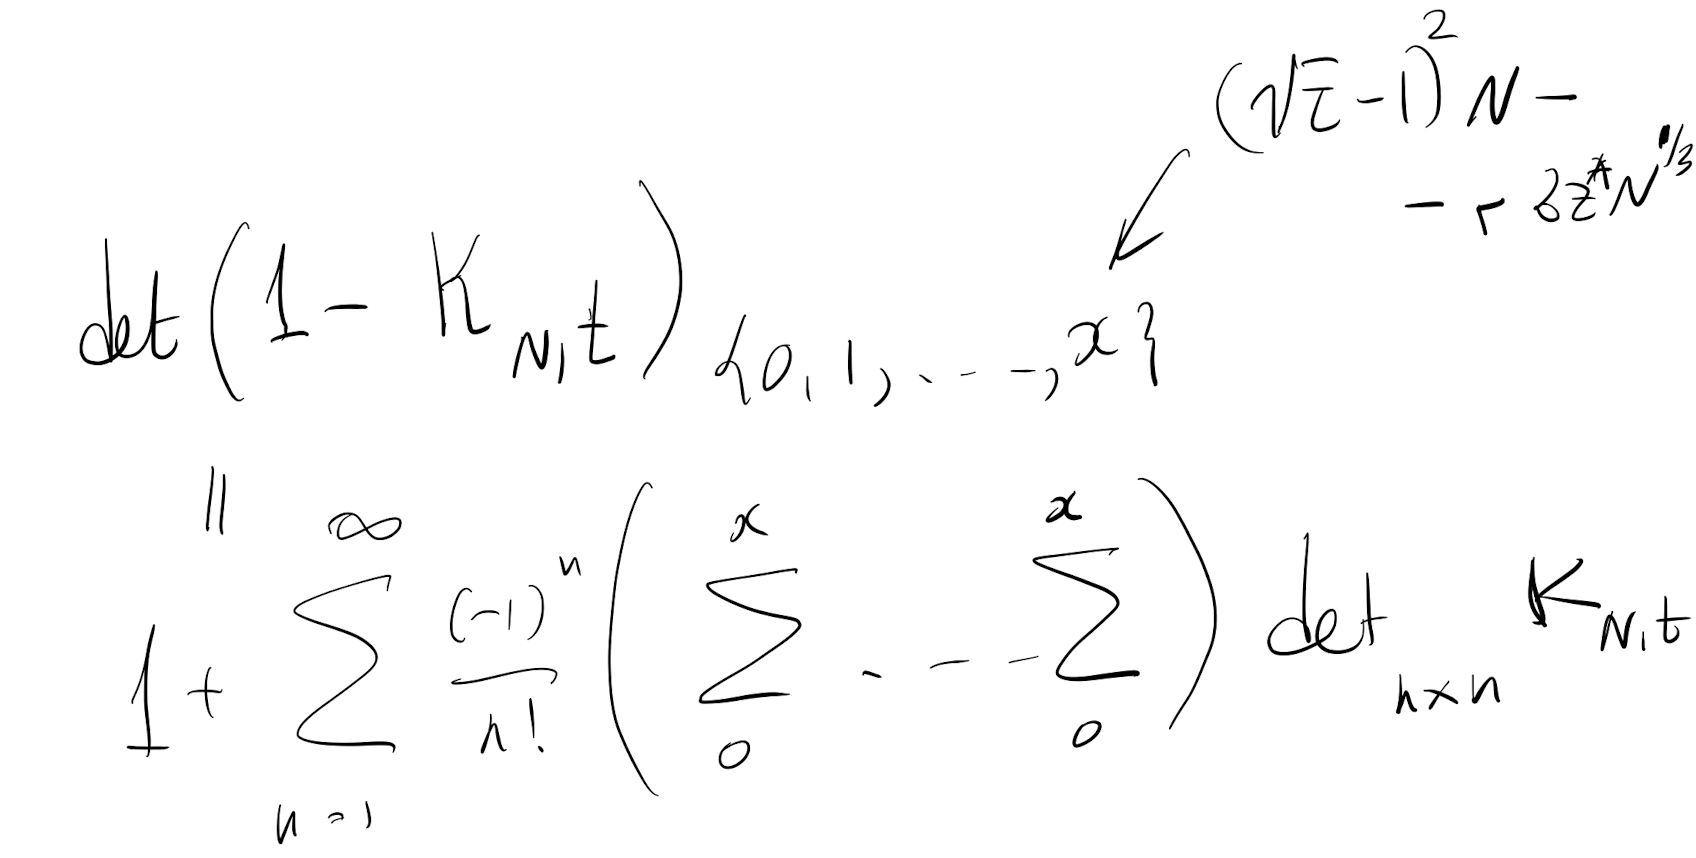 (√τ - 1)² N -
- r σz* N^{1/3}
det(1 - K_{N,t})_{{0, 1, ..., x}}
||
1 + ∑_{n=1}^{∞} (-1)^n / n! (∑_{0}^{x} ... ∑_{0}^{x}) det_{n×n} K_{N,t}